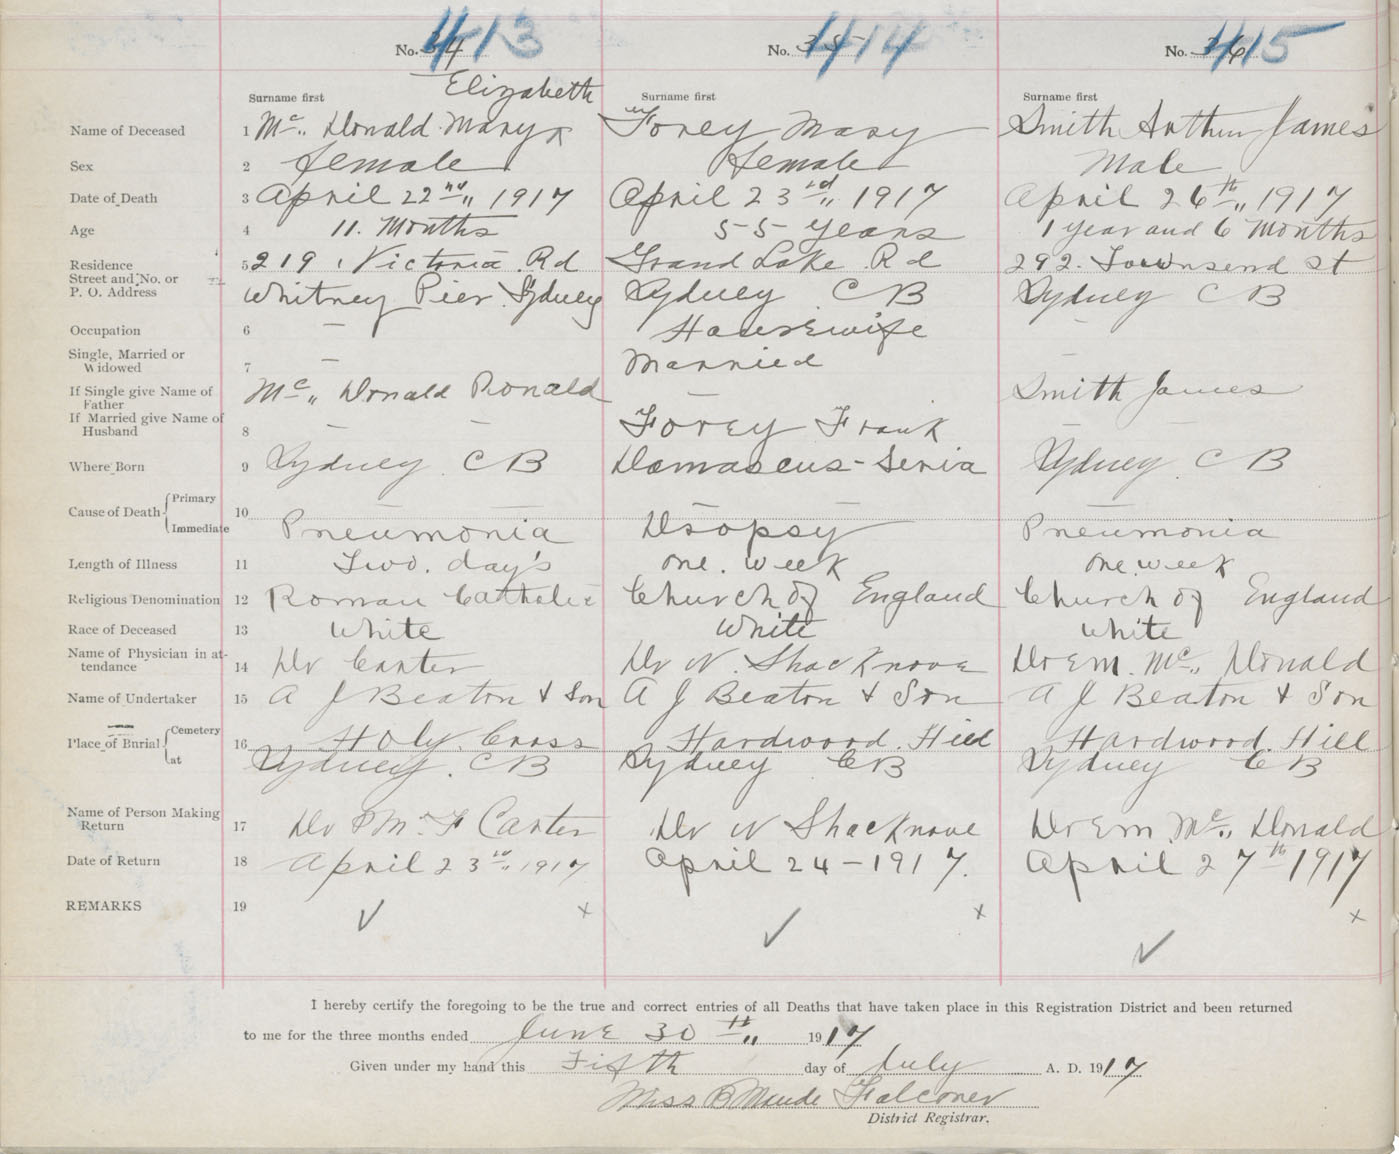 413 414 415
No. 34 No. 35 No. 36
Elizabeth
Surname first Surname first Surname first
Name of Deceased 1 Mc,, Donald Mary x Forey Mary Smith Arthur James
Sex 2 female female Male
Date of Death 3 April 22nd,, 1917 April 23rd,, 1917 April 26th,, 1917
Age 4 11. Months 55 years 1 year and 6 Months
Residence 5 219, Victoria Rd Grand Lake Rd 292. Townsend St
Street and No. or
P. O. Address Whitney Pier Sydney Sydney CB Sydney CB
Occupation 6 — Housewife —
Single, Married or
Widowed 7 — Married —
If Single give Name of
Father Mc,, Donald Ronald — Smith James
If Married give Name of
Husband 8 — — Forey Frank —
Where Born 9 Sydney CB Damascus - Seria Sydney. CB
Cause of Death { Primary 10 — — —
Immediate Pneumonia Dropsy Pneumonia
Length of Illness 11 Two. day's one. week one week
Religious Denomination 12 Roman Catholic Church of England Church of England
Race of Deceased 13 White White White
Name of Physician in at-
tendance 14 Dr Carter Dr N. Shacknove Dr E M. Mc,, Donald
Name of Undertaker 15 A J Beaton & Son A J Beaton & Son A J Beaton & Son
Place of Burial { Cemetery 16 Holy Cross Hardwood Hill Hardwood. Hill
at Sydney. CB Sydney CB Sydney CB
Name of Person Making
Return 17 Dr F Carter Dr N Shacknove Dr E M. Mc,, Donald
Date of Return 18 April 23rd,, 1917 April 24 - 1917. April 27th 1917
REMARKS 19 ✓ x ✓ x ✓ x
I hereby certify the foregoing to be the true and correct entries of all Deaths that have taken place in this Registration District and been returned
to me for the three months ended June 30th,, 1917
Given under my hand this Fifth day of July A. D. 1917
Miss B Maude Falconer
District Registrar.